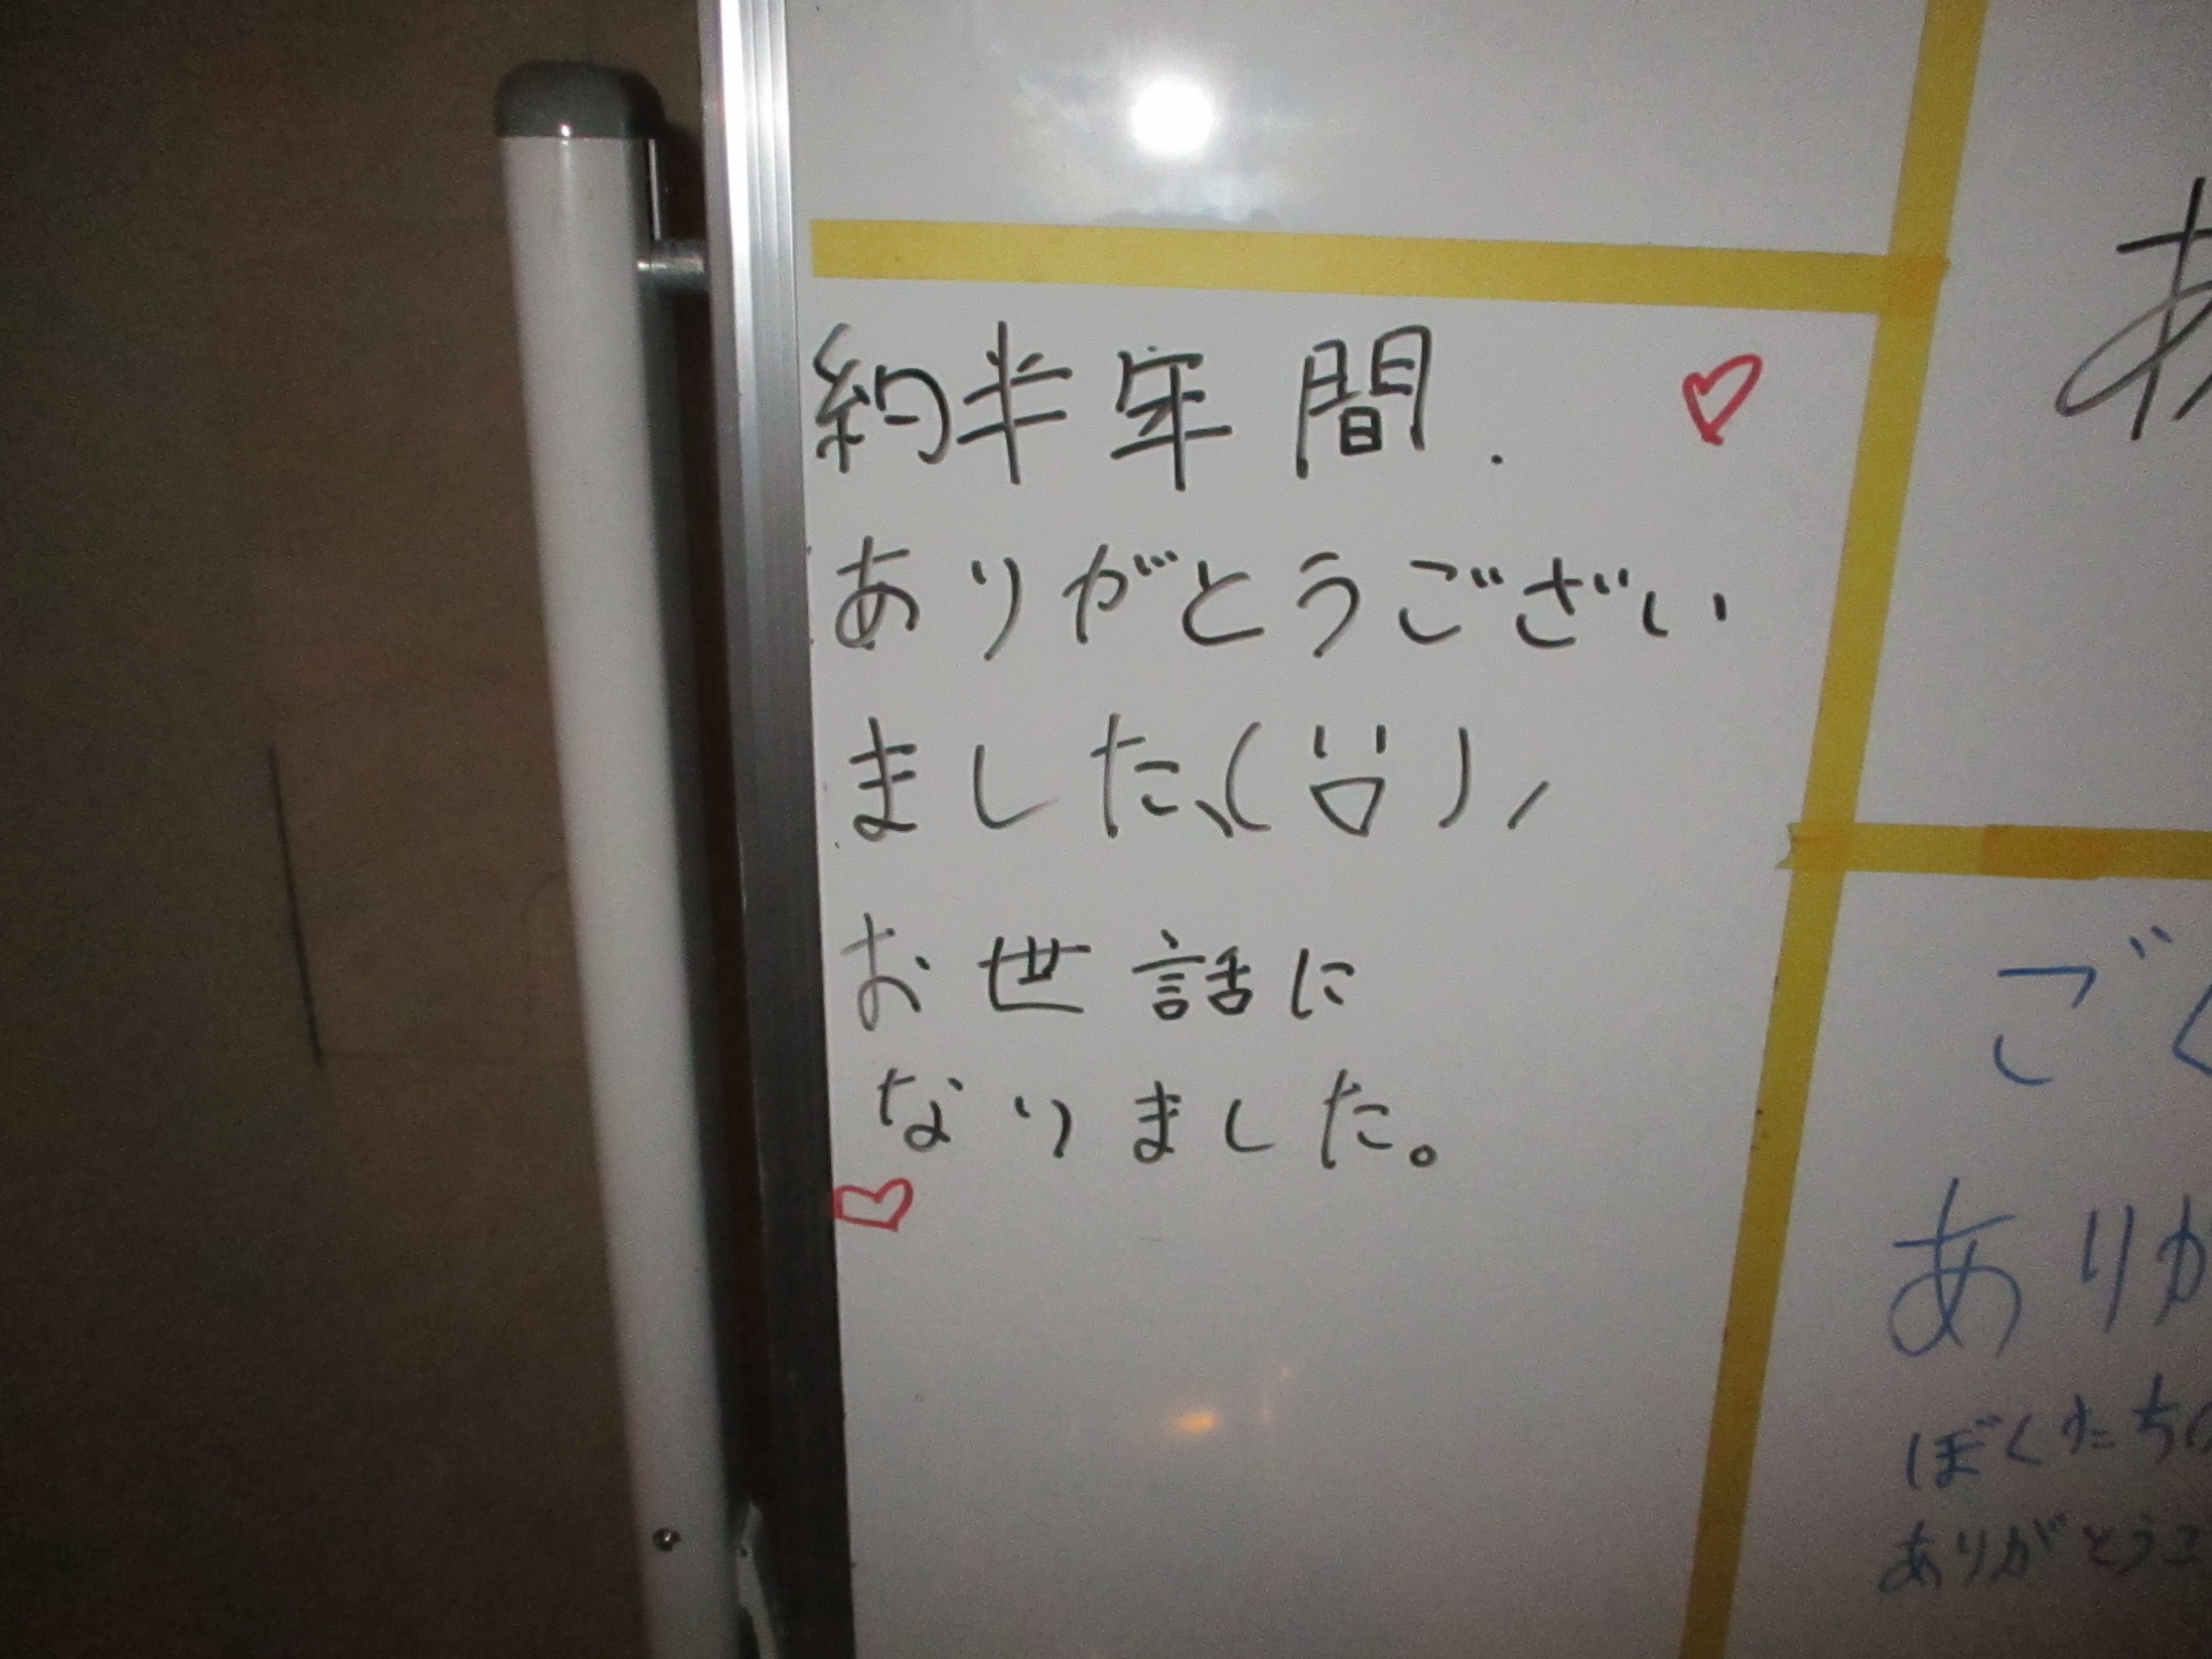 約半年間. ♡
ありがとうござい
ました、( ¨▽ )ノ
お世話に
なりました。
♡
あ
ごく
ありが
ぼくたちの
ありがとうご